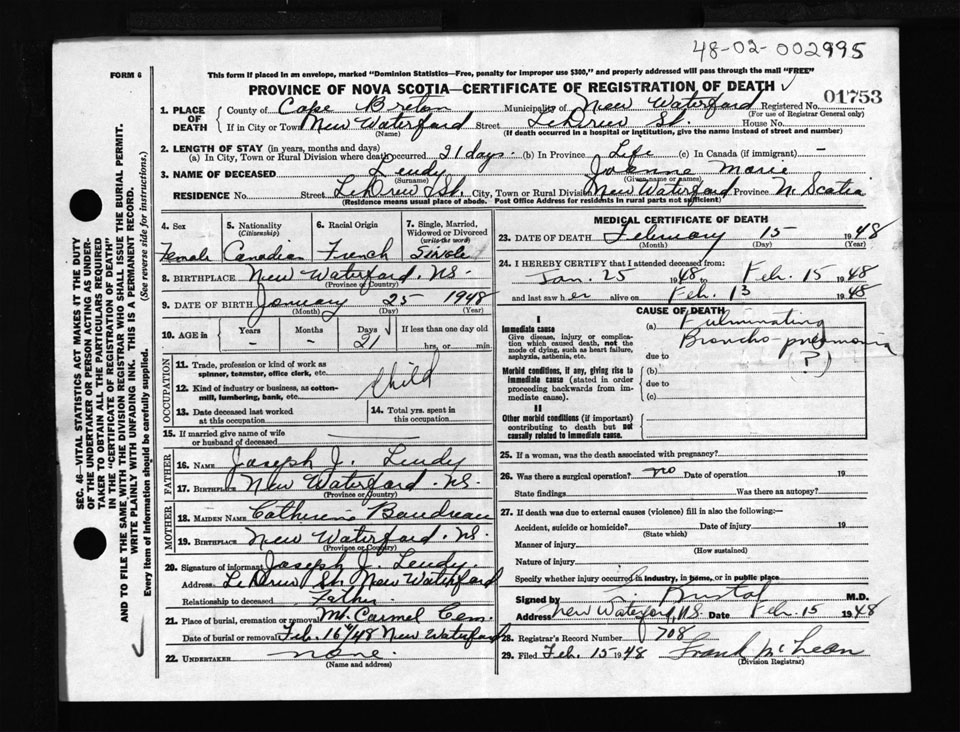 48-02-002995
FORM 6
This form if placed in an envelope, marked "Dominion Statistics—Free, penalty for improper use $300," and properly addressed will pass through the mail "FREE"
PROVINCE OF NOVA SCOTIA—CERTIFICATE OF REGISTRATION OF DEATH
01753
1. PLACE OF DEATH County of Cape Breton Municipality of New Waterford Registered No.
(For use of Registrar General only)
If in City or Town New Waterford Street LeDrew St. House No.
(Name) (If death occurred in a hospital or institution, give the name instead of street and number)
2. LENGTH OF STAY (in years, months and days)
(a) In City, Town or Rural Division where death occurred 21 days. (b) In Province Life (c) In Canada (if immigrant) —
3. NAME OF DECEASED Lendy Joanne Marie
(Surname) (Given name or names)
RESIDENCE No. Street LeDrew St. City, Town or Rural Division New Waterford Province N. Scotia
(Residence means usual place of abode. Post Office Address for residents in rural parts not sufficient)
4. Sex 5. Nationality (Citizenship) 6. Racial Origin 7. Single, Married, Widowed or Divorced (write the word)
Female Canadian French Single
8. BIRTHPLACE New Waterford. NS.
(Province or Country)
9. DATE OF BIRTH January 25 1948
(Month) (Day) (Year)
10. AGE in Years Months Days If less than one day old
- - 21 hrs. or min.
OCCUPATION
11. Trade, profession or kind of work as spinner, teamster, office clerk, etc.
Child
12. Kind of industry or business, as cotton-mill, lumbering, bank, etc.
13. Date deceased last worked at this occupation
14. Total yrs. spent in this occupation
15. If married give name of wife or husband of deceased
FATHER
16. NAME Joseph J. Lendy
17. BIRTHPLACE New Waterford. NS.
(Province or Country)
MOTHER
18. MAIDEN NAME Catherine Baudreau
19. BIRTHPLACE New Waterford. NS.
(Province or Country)
20. Signature of informant Joseph J. Lendy.
Address LeDrew St. New Waterford
Relationship to deceased Father
21. Place of burial, cremation or removal Mt. Carmel Cem.
Date of burial or removal Feb. 16/48 New Waterford
22. UNDERTAKER none.
(Name and address)
MEDICAL CERTIFICATE OF DEATH
23. DATE OF DEATH February 15 1948
(Month) (Day) (Year)
24. I HEREBY CERTIFY that I attended deceased from:
Jan. 25 1948 to Feb. 15 1948
and last saw her alive on Feb. 13 1948
CAUSE OF DEATH
I
Immediate cause
Give disease, injury or complication which caused death, not the mode of dying, such as heart failure, asphyxia, asthenia, etc.
(a) Fulminating
Broncho-pneumonia
due to (?)
Morbid conditions, if any, giving rise to immediate cause (stated in order proceeding backwards from immediate cause).
(b)
due to
(c)
II
Other morbid conditions (if important) contributing to death but not causally related to immediate cause.
25. If a woman, was the death associated with pregnancy?
26. Was there a surgical operation? no Date of operation 19
State findings Was there an autopsy?
27. If death was due to external causes (violence) fill in also the following:—
Accident, suicide or homicide? Date of injury 19
(State which)
Manner of injury
(How sustained)
Nature of injury
Specify whether injury occurred in industry, in home, or in public place
Signed by Bristol M.D.
Address New Waterford, N.S. Date Feb. 15 1948
28. Registrar's Record Number 708
29. Filed Feb. 15 1948 Frank McLean
(Division Registrar)
SEC. 46—VITAL STATISTICS ACT MAKES IT THE DUTY
OF THE UNDERTAKER OR PERSON ACTING AS UNDER-
TAKER TO OBTAIN ALL THE PARTICULARS REQUIRED
IN THE "CERTIFICATE OF REGISTRATION OF DEATH"
AND TO FILE THE SAME WITH THE DIVISION REGISTRAR WHO SHALL ISSUE THE BURIAL PERMIT.
WRITE PLAINLY WITH UNFADING INK. THIS IS A PERMANENT RECORD.
Every item of Information should be carefully supplied. (See reverse side for instructions.)